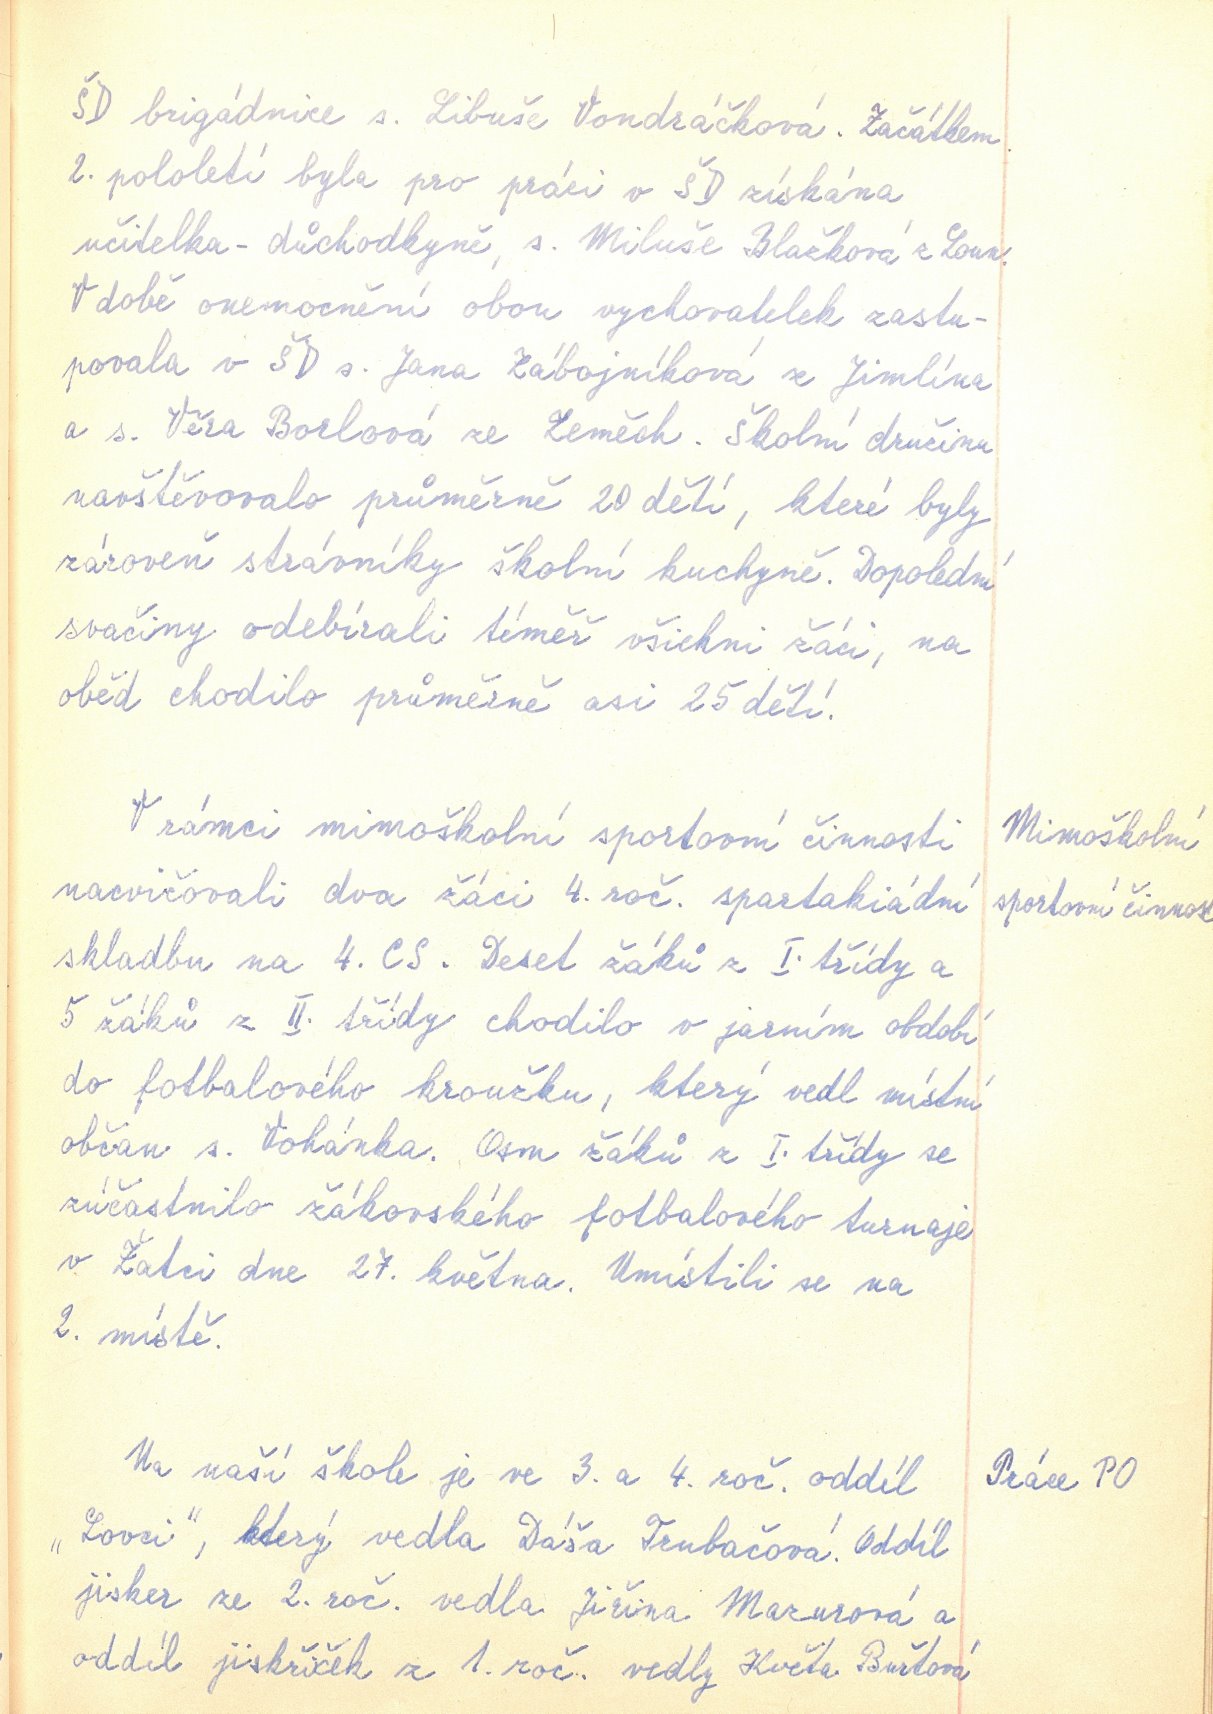 ŠD brigádnice s. Libuše Vondráčková. Začátkem
2. pololetí byla pro práci v ŠD získána
učitelka - důchodkyně, s. Miluše Blažková z Loun.
V době onemocnění obou vychovatelek zastu-
povala v ŠD s. Jana Zábojníková z Jimlína
a s. Věra Borlová ze Zeměch. Školní družinu
navštěvovalo průměrně 20 dětí, které byly
zároveň strávníky školní kuchyně. Dopolední
svačiny odebírali téměř všichni žáci, na
oběd chodilo průměrně asi 25 dětí.
V rámci mimoškolní sportovní činnosti
Mimoškolní
nacvičovali dva žáci 4. roč. spartakiádní
sportovní činnost
skladbu na 4. CS. Deset žáků z I. třídy a
5 žáků z II. třídy chodilo v jarním období
do fotbalového kroužku, který vedl místní
občan s. Vohánka. Osm žáků z I. třídy se
zúčastnilo žákovského fotbalového turnaje
v Žatci dne 27. května. Umístili se na
2. místě.
Na naší škole je ve 3. a 4. roč. oddíl
Práce PO
„Lovci", který vedla Dáša Trubačová. Oddíl
jisker ze 2. roč. vedla Jiřina Mazurová a
oddíl jiskřiček z 1. roč. vedly Květa Buřtová